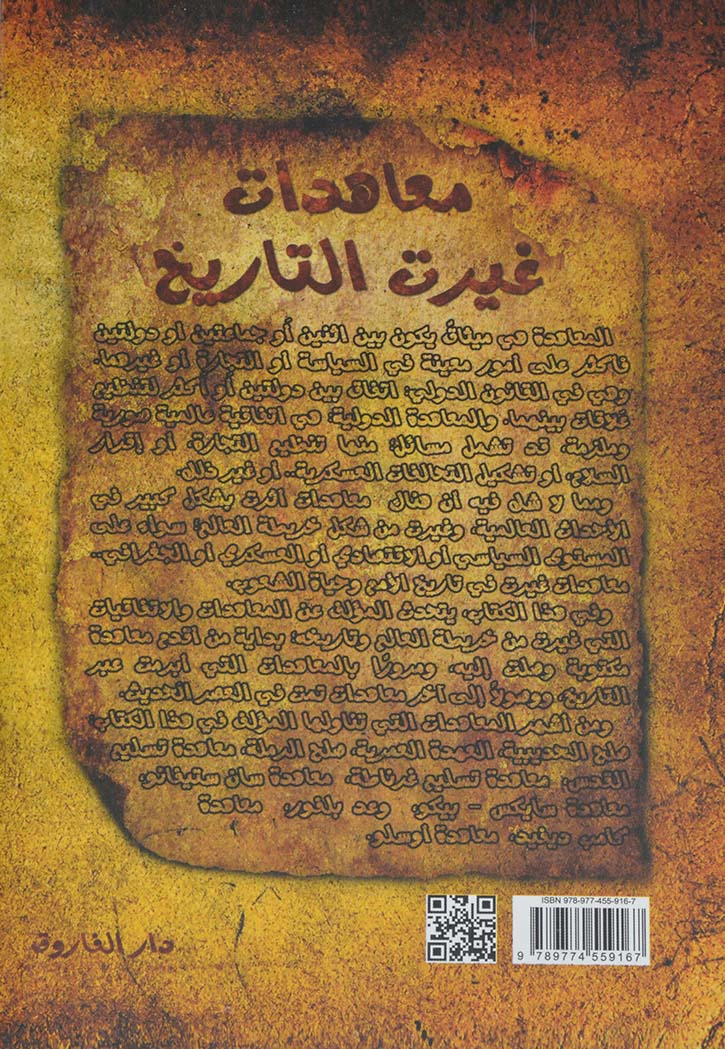 معاهدات
غيرت التاريخ
المعاهدة هي ميثاق يكون بين اثنين أو جماعتين أو دولتين
فأكثر على أمور معينة في السياسة أو التجارة أو غيرهما.
وهي في القانون الدولي: اتفاق بين دولتين أو أكثر لتنظيم
علاقات بينهما. والمعاهدة الدولية: هي اتفاقية عالمية صورية
وملزمة، قد تشمل مسائل: منها تنظيم التجارة، أو إقرار
السلام، أو تشكيل التحالفات العسكرية.. أو غير ذلك.
ومما لا شك فيه أن هناك معاهدات أثرت بشكل كبير في
الأحداث العالمية، وغيرت من شكل خريطة العالم: سواء على
المستوى السياسي أو الاقتصادي أو العسكري أو الجغرافي..
معاهدات غيرت في تاريخ الأمم وحياة الشعوب.
وفي هذا الكتاب، يتحدث المؤلف عن المعاهدات والاتفاقيات
التي غيرت من خريطة العالم وتاريخه: بداية من أقدم معاهدة
مكتوبة وصلت إليه، ومرورًا بالمعاهدات التي أبرمت عبر
التاريخ، ووصولاً إلى آخر معاهدات تمت في العصر الحديث.
ومن أشهر المعاهدات التي تناولها المؤلف في هذا الكتاب:
صلح الحديبية، العهدة العمرية، صلح الرملة، معاهدة تسليم
القدس، معاهدة تسليم غرناطة، معاهدة سان ستيفانو،
معاهدة سايكس - بيكو، وعد بلفور، معاهدة
كامب ديفيد، معاهدة أوسلو.
دار الفاروق
ISBN 978-977-455-916-7
9 789774 559167